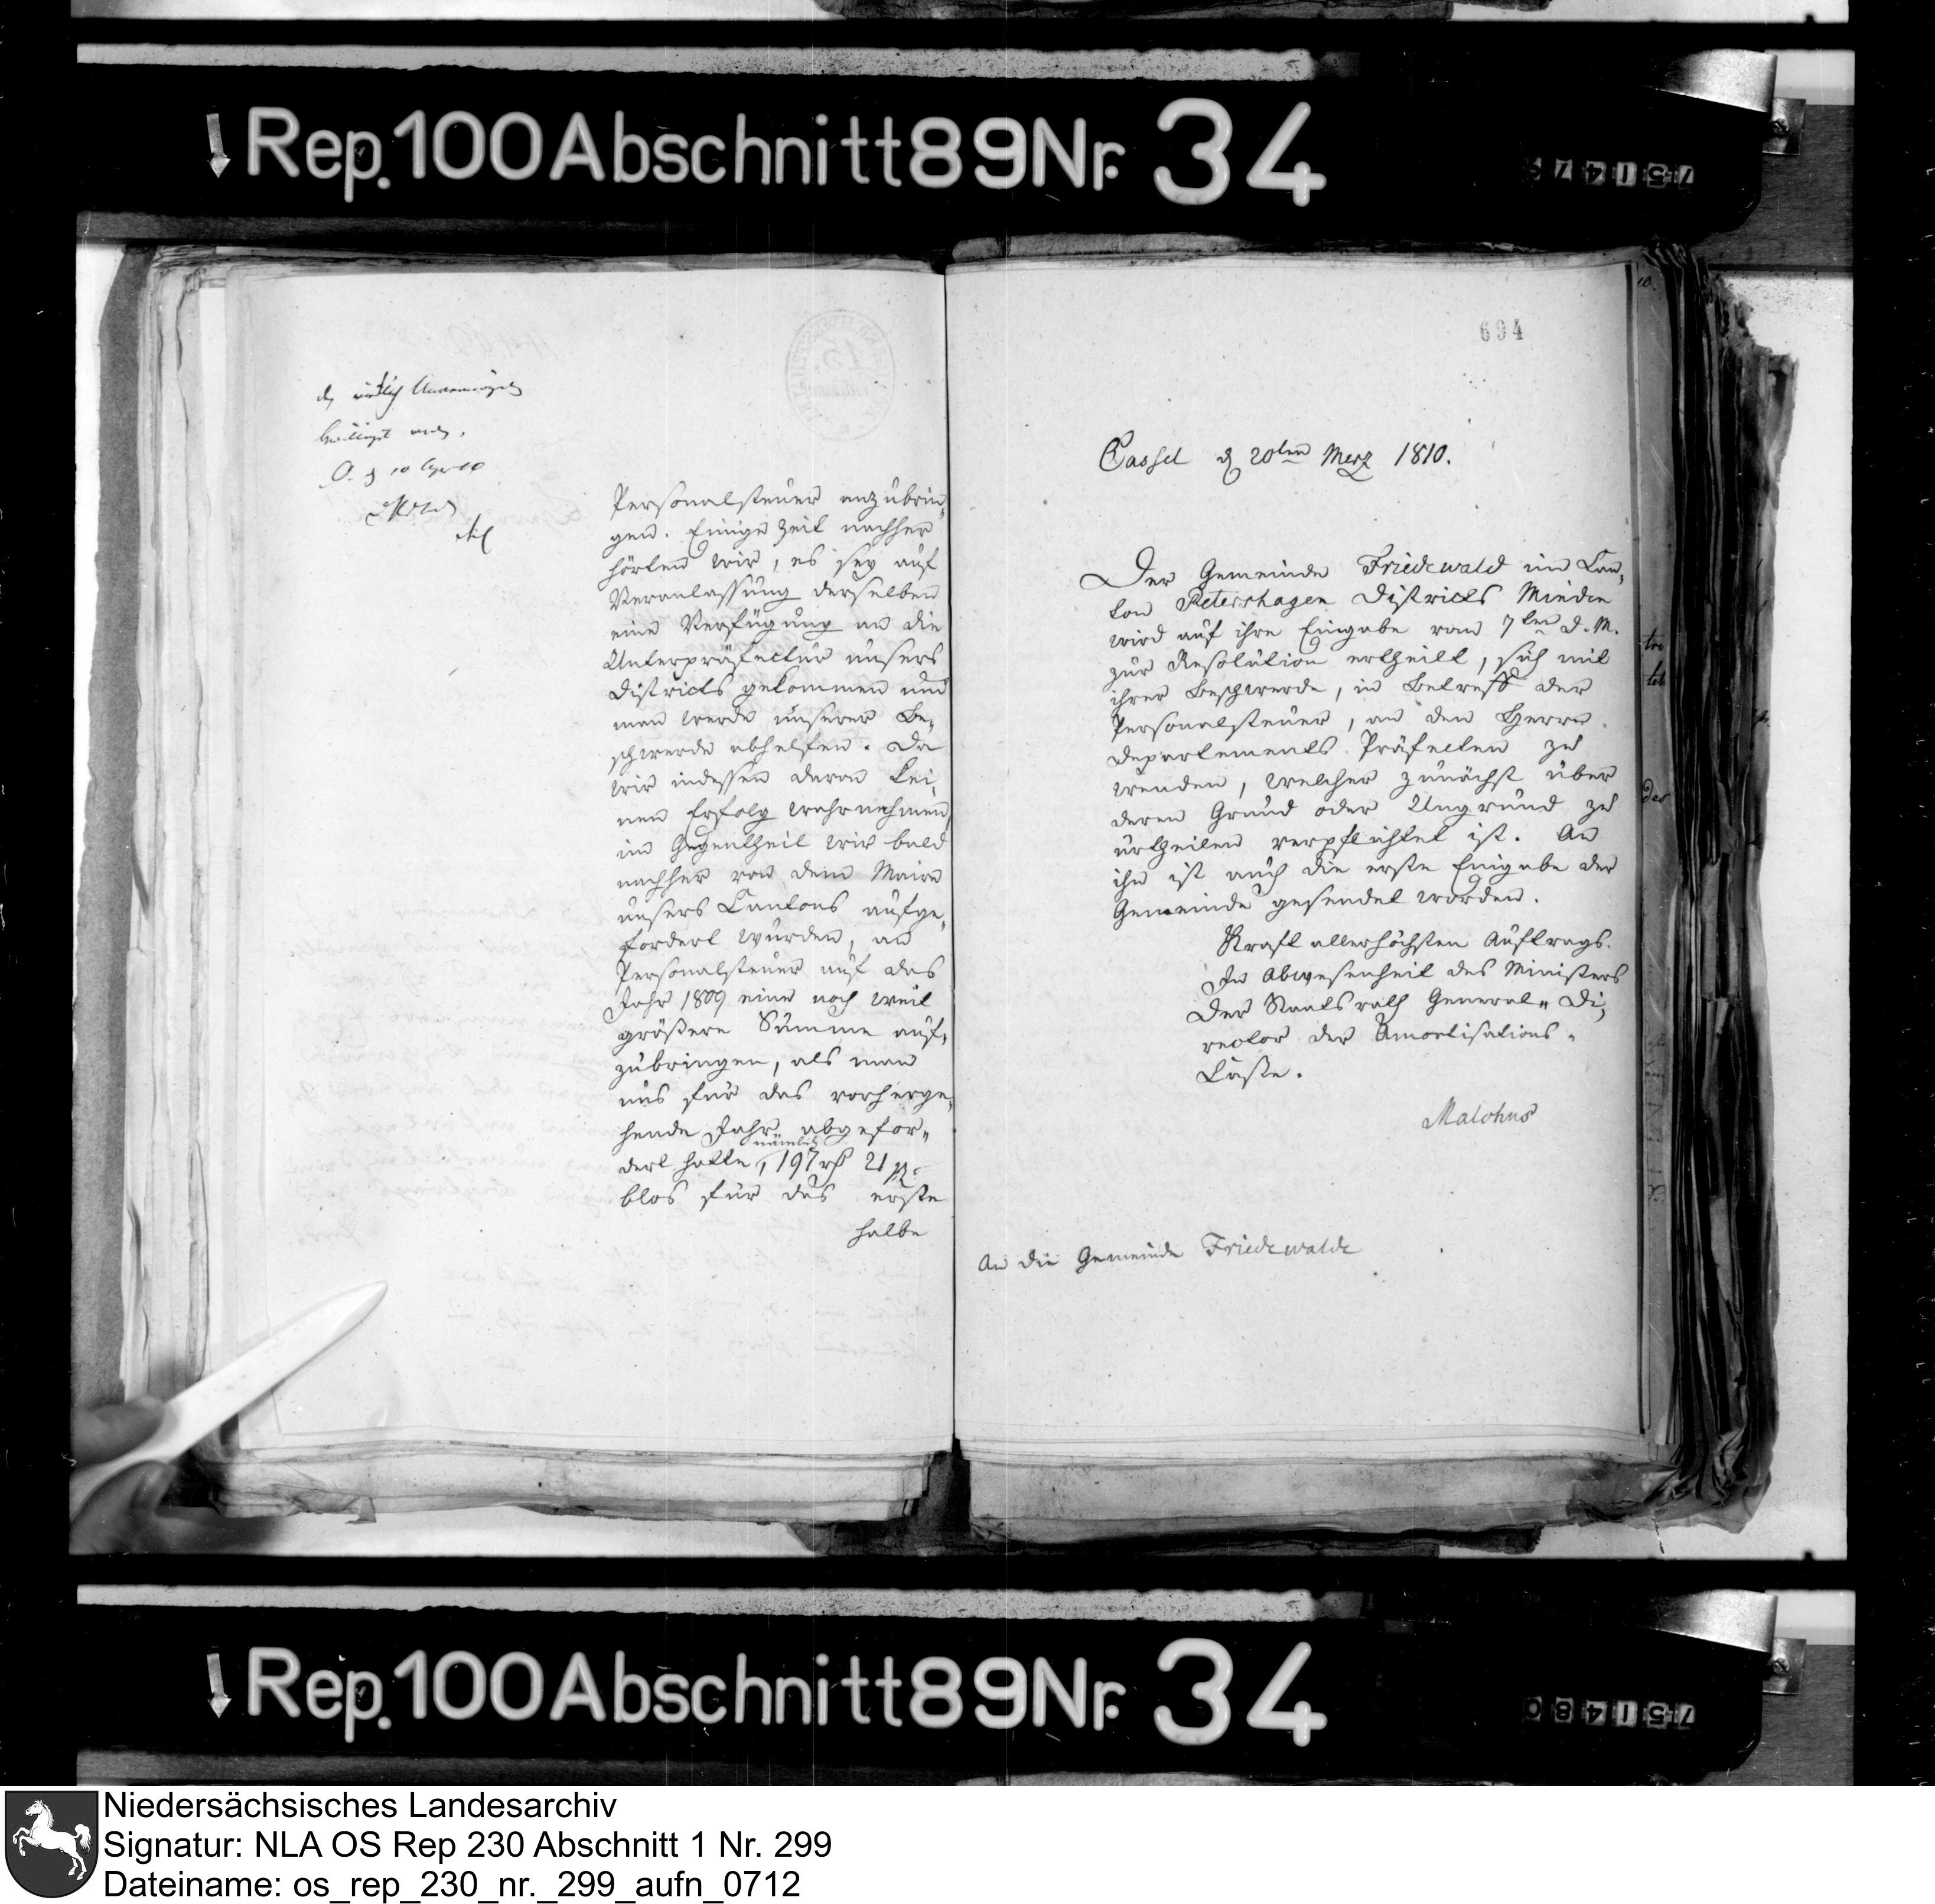 Rep. 100 Abschnitt 89 Nr. 34
694
Personalsteuer anzubrin,
gen. Einige Zeit nachher
hörten wir, es sey auf
Veranlassung derselben
eine Verfügung an die
Unterpräfectur unsers
Districts gekommen und
man werde unserer Be,
schwerde abhelfen. Da
wir indessen davon kei,
nen Erfolg wahrnehmen,
im Gegentheil wir bald
nachher von dem Maire
unsers Cantons aufge,
fordert wurden, an
Personalsteuer auf das
Jahr 1809 eine noch weit
größere Summe auf,
zubringen, als man
uns für das vorherge,
hende Jahr abgefor,,
dert hatte, nämlich 197 rth 21
blos für das erste
halbe
Cassel d 20ten Merz 1810.
Der Gemeinde Friedewald im Can,
ton Petershagen Districts Minden
wird auf ihre Eingabe vom 7ten d. M.
zur Resolution ertheilt, sich mit
ihrer Beschwerde, in Betreff der
Personalsteuer, an den Herrn
Departements Präfecten zu
wenden, welcher zunächst über
deren Grund oder Ungrund zu
urtheilen verpflichtet ist. An
ihn ist auch die erste Eingabe der
Gemeinde gesendet worden.
Kraft allerhöchsten Auftrags.
In Abwesenheit des Ministers
Der Staatsrath General,, Di,
rector der Amortisations,,
Casse.
Malchus
An die Gemeinde Friedewalde
Rep. 100 Abschnitt 89 Nr. 34
Niedersächsisches Landesarchiv
Signatur: NLA OS Rep 230 Abschnitt 1 Nr. 299
Dateiname: os_rep_230_nr._299_aufn_0712